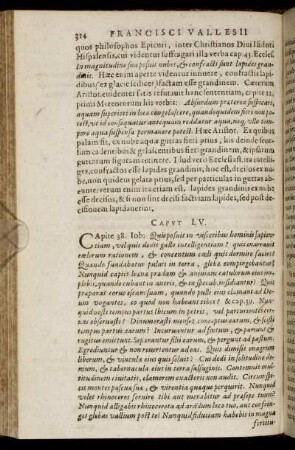 314 FRANCISCI VALLESII
quot philosophos Epicuri, inter Christianos Diui Isidori
Hispalensis, cui videntur suffragari illa verba cap. 43. Eccles.
In magnitudine sua posuit nubes, & confracti sunt lapides gran-
dinis. Hæc enim aperte videntur innuere, confractis lapi-
dibus ex glacie scilicet factam esse grandinem. Cæterum
Aristot. euidenter satis refutauit hanc sententiam, capite 12.
primi Meteororum his verbis: Absurdum præterea suspicari,
aquam superiori in loco congelascere, quandoquidem fieri non po-
test, vt id consequatur antequam reddatur aqua, neq; vllo tem-
pore aqua suspensa permanere potest. Hæc Aristot. Ex quibus
palam fit, ex nube aqua guttas fieri prius, has deinde
in cadentibus & glaciescentibus fieri grandinem, & ipsarum
guttarum figuram retinere. Illud verò Ecclesiastici, ita intelli-
go, confractos esse lapides grandinis, non qui fierent ex nu-
be, non quidem gelata prius, sed per particulas in guttas ab-
eunte, nam grandines etiam est. lapides grandinis ex nube
decisos, & si non dum sint decisi factisam lapides, sed post de-
cisionem lapidauerint.
CAPVT LV.
CApite 38. Iob: Quis posuit in visceribus hominis sapien-
tiam, vel quis dedit gallo intelligentiam? quis enarrauit
cælorum rationem, & concentum cæli quis dormire faciet?
Quando fundabatur puluis in terra, & glebæ compingebantur?
Nunquid capies leænæ prædam & animam catulorum eius im-
plebis, quando cubant in antris, & in specubus insidiantur? Quis
præparat coruo escam suam, quando pulli eius clamant ad De-
um vagantes, eo quod non habeant cibos? & cap. 39. Nun-
quid nosti tempus partus ibicum in petris, vel parturientes cer-
uas obseruasti? Dinumerasti menses conceptus earum, & scisti
tempus partus earum? Incuruantur ad fœtum, & pariunt, &
rugitus emittunt. Separantur filii earum, & pergunt ad pastum.
Egrediuntur & non reuertuntur ad eas. Quis dimisit onagrum
liberum, & vincula eius quis soluit? Cui dedi in solitudine do-
mum, & tabernacula eius in terra salsuginis. Contemnit mul-
titudinem ciuitatis, clamorem exactoris non audit. Circumspi-
cit montes pascuæ suæ, & virentia quæque perquirit. Nunquid
volet rhinoceros seruire tibi aut morabitur ad præsepe tuum?
Nunquid alligabis rhinocerota ad arandum loro tuo, aut confrin-
get glebas vallium post te? Nunquid fiduciam habebis in magna
fortitu-